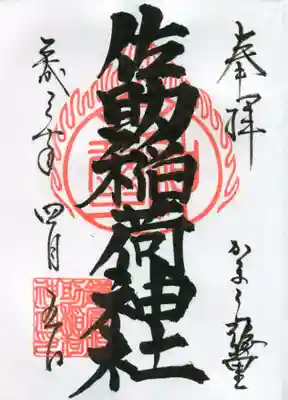 奉拝
かまくら隠里
佐助稲荷神社
平成三十年 四月 五日